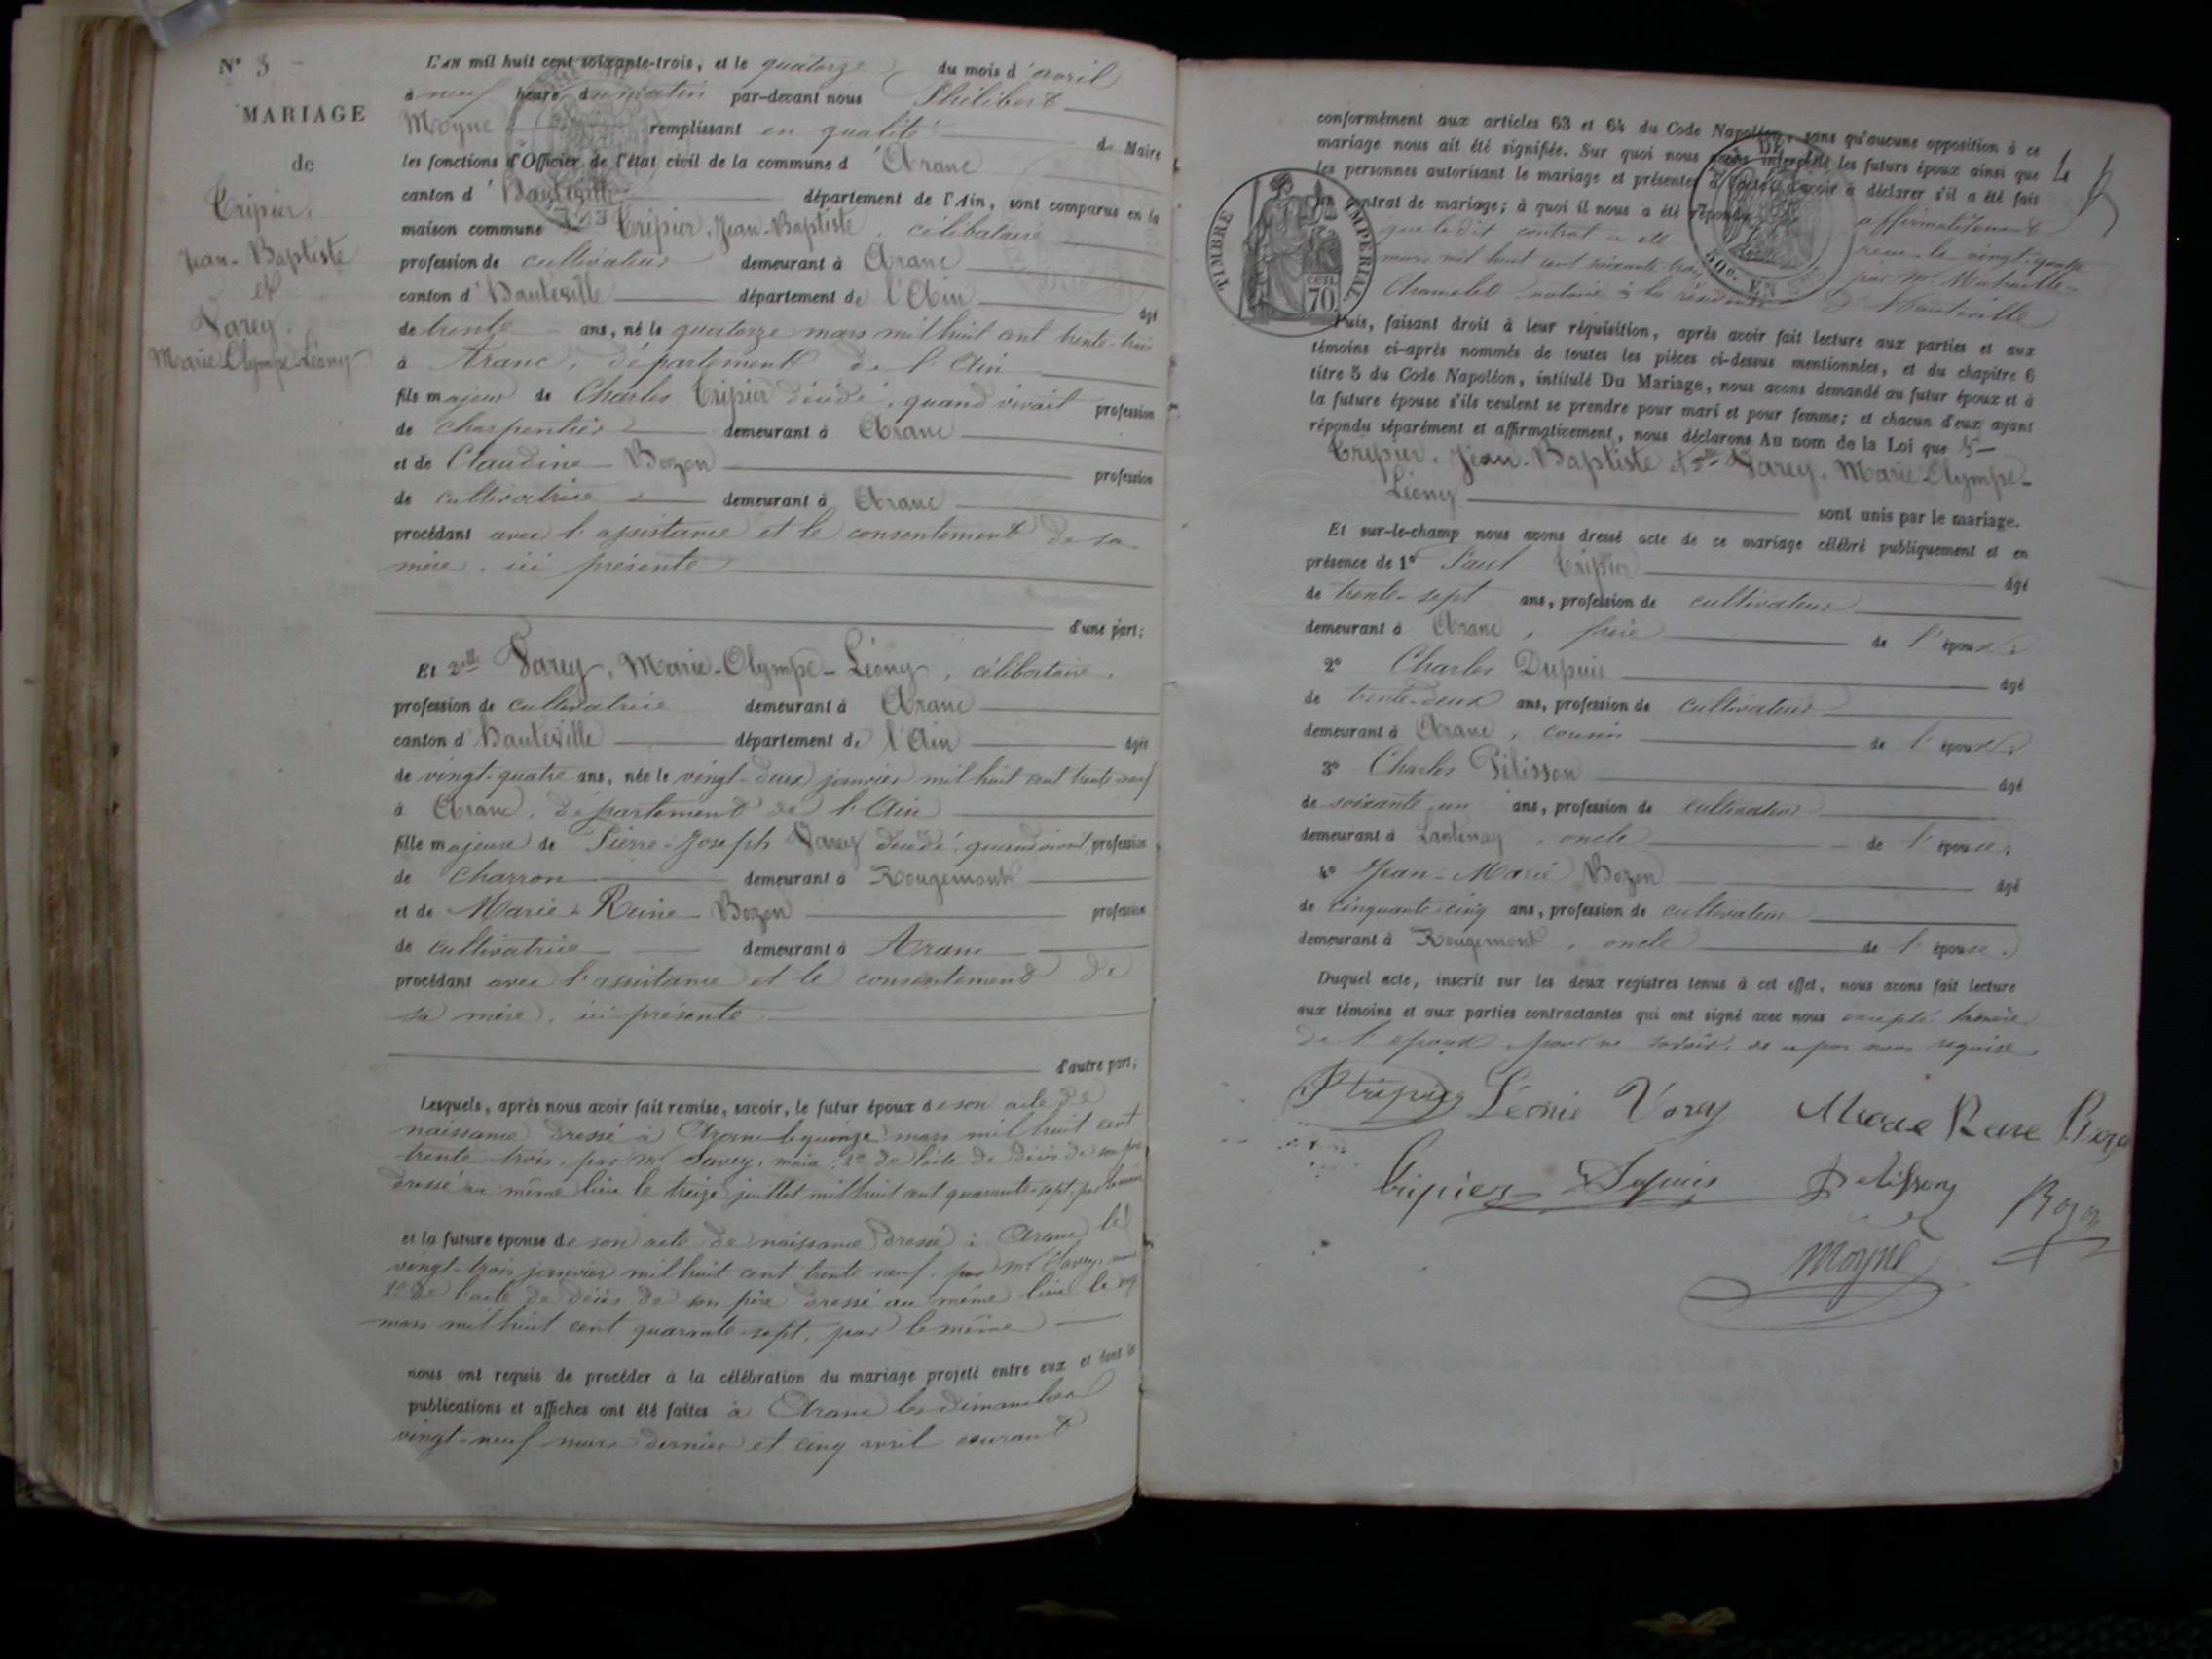 N° 3
MARIAGE
de
Tripier,
Jean-Baptiste
et
Varey,
Marie-Olympe-Léony
L'an mil huit cent soixante-trois, et le quatorze du mois d'avril
à neuf heure du matin par-devant nous Philibert
Moyne remplissant en qualité de Maire
les fonctions d'Officier de l'état civil de la commune d'Aranc
canton d'Hauteville département de l'Ain, sont comparus en la
maison commune Tripier, Jean-Baptiste, célibataire
profession de cultivateur demeurant à Aranc
canton d'Hauteville département de l'Ain âgé
de trente ans, né le quatorze mars mil huit cent trente-trois
à Aranc, département de l'Ain
fils majeur de Charles Tripier décédé, quand vivait profession
de charpentier demeurant à Aranc
et de Claudine Bozon profession
de cultivatrice demeurant à Aranc
procédant avec l'assistance et le consentement de sa
mère, ici présente
d'une part;
Et 2° Varey, Marie-Olympe-Léony, célibataire,
profession de cultivatrice demeurant à Aranc
canton d'Hauteville département de l'Ain âgée
de vingt-quatre ans, née le vingt-deux janvier mil huit cent trente-neuf
à Aranc, département de l'Ain
fille majeure de Pierre-Joseph Varey décédé, quand vivait profession
de charron demeurant à Rougemont
et de Marie-Reine Bozon profession
de cultivatrice demeurant à Aranc
procédant avec l'assistance et le consentement de
sa mère, ici présente
d'autre part;
Lesquels, après nous avoir fait remise, savoir, le futur époux de son acte de
naissance dressé à Aranc le quinze mars mil huit cent
trente-trois, par mr Savey, maire; 2° de l'acte de décès de son père
dressé au même lieu le treize juillet mil huit cent quarante-sept, par le même
et la future épouse de son acte de naissance dressé à Aranc le
vingt-trois janvier mil huit cent trente neuf, par mr Savey, maire
2° de l'acte de décès de son père dressé au même lieu le
mars mil huit cent quarante-sept, par le même
nous ont requis de procéder à la célébration du mariage projeté entre eux et dont les
publications et affiches ont été faites à Aranc les dimanches
vingt-neuf mars dernier et cinq avril courant
conformément aux articles 63 et 64 du Code Napoléon, sans qu'aucune opposition à ce
mariage nous ait été signifiée. Sur quoi nous avons interpellé les futurs époux ainsi que
les personnes autorisant le mariage et présentes à l'acte, d'avoir à déclarer s'il a été fait
un contrat de mariage; à quoi il nous a été répondu affirmativement
que ledit contrat a été reçu le vingt-quatre
mars mil huit cent soixante-trois par Mr
notaire à la résidence d'Hauteville
TIMBRE IMPERIAL
CEN. 70
50c. EN
Puis, faisant droit à leur réquisition, après avoir fait lecture aux parties et aux
témoins ci-après nommés de toutes les pièces ci-dessus mentionnées, et du chapitre 6
titre 5 du Code Napoléon, intitulé Du Mariage, nous avons demandé au futur époux et à
la future épouse s'ils veulent se prendre pour mari et pour femme; et chacun d'eux ayant
répondu séparément et affirmativement, nous déclarons Au nom de la Loi que
Tripier, Jean-Baptiste et Varey, Marie-Olympe-
Léony
sont unis par le mariage.
Et sur-le-champ nous avons dressé acte de ce mariage célébré publiquement et en
présence de 1° Paul Tripier âgé
de trente-sept ans, profession de cultivateur
demeurant à Aranc, frère de l'époux;
2° Charles Dupuis âgé
de trente-deux ans, profession de cultivateur
demeurant à Aranc, cousin de l'époux;
3° Charles Pélisson âgé
de soixante-un ans, profession de cultivateur
demeurant à Lantenay, oncle de l'épouse;
4° Jean-Marie Bozon âgé
de cinquante-cinq ans, profession de cultivateur
demeurant à Rougemont, oncle de l'épouse.
Duquel acte, inscrit sur les deux registres tenus à cet effet, nous avons fait lecture
aux témoins et aux parties contractantes qui ont signé avec nous excepté la mère
de l'époux, pour ne savoir, de ce par nous requise
tripier Léonie Varey Marie Reine Bozon
tripier Dupuis Pelisson Bozon
Moyne